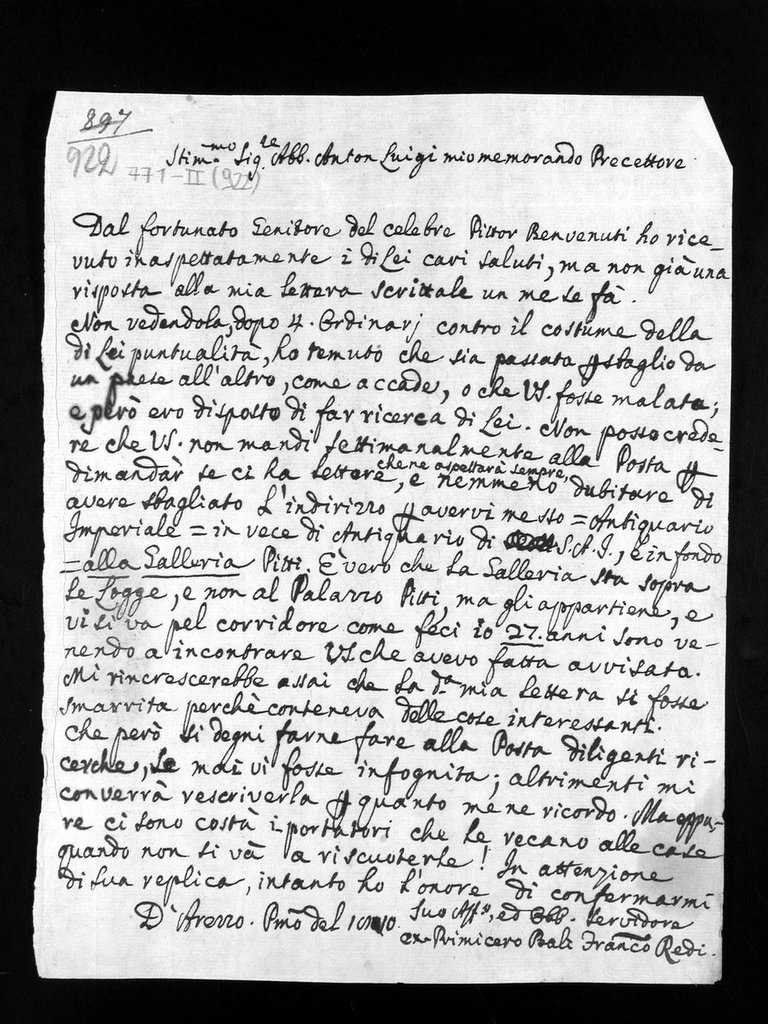 897
922
771-II (922)
Stim.mo Sig.re Abb. Anton Luigi mio memorando Precettore
Dal fortunato Genitore del celebre Pittor Benvenuti ho rice-
vuto inaspettatamente i di Lei cari saluti, ma non già una
risposta alla mia lettera scrittale un mese fà.
Non vedendola, dopo 4. Ordinarj contro il costume della
di Lei puntualità, ho temuto che sia passata p sbaglio da
un paese all'altro, come accade, o che VS. fosse malata;
e però ero disposto di far ricerca di Lei. Non posso crede-
re che VS. non mandi settimanalmente alla Posta p
dimandàr se ci ha lettere, che ne aspettarà sempre, e nemmeno dubitare di
avere sbagliato l'indirizzo p avervi messo = Antiquario
Imperiale = in vece di Antiquario di S.A.I., e in fondo
= alla Galleria Pitti. È vero che la Galleria sta sopra
le Logge, e non al Palazzo Pitti, ma gli appartiene, e
vi si va pel corridore come feci io 27. anni sono ve-
nendo a incontrare VS. che avevo fatta avvisata.
Mi rincrescerebbe assai che la d.a mia lettera si fosse
smarrita perchè conteneva delle cose interessanti.
che però si degni farne fare alla Posta diligenti ri-
cerche, se mai vi fosse infognita; altrimenti mi
converrà rescriverla p quanto me ne ricordo. Ma eppu-
re ci sono costà i portatori che le recano alle case
quando non si và a riscuoterle! In attenzione
di sua replica, intanto ho l'onore di confermarmi
D'Arezzo. Pmo del Suo Aff.o, ed Obb. Servidore
ex-Primicero Balì Franco Redi.